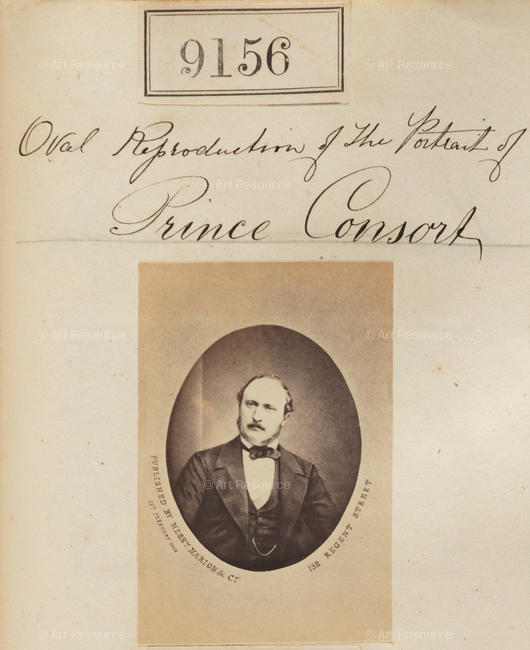 9156
Oval Reproduction of the Portrait of
Prince Consort
PUBLISHED BY MESSRS MARION & Co
152 REGENT STREET
© Art Resource
© Art Resource
© Art Resource
© Art Resource
© Art Resource
© Art Resource
© Art Resource
© Art Resource